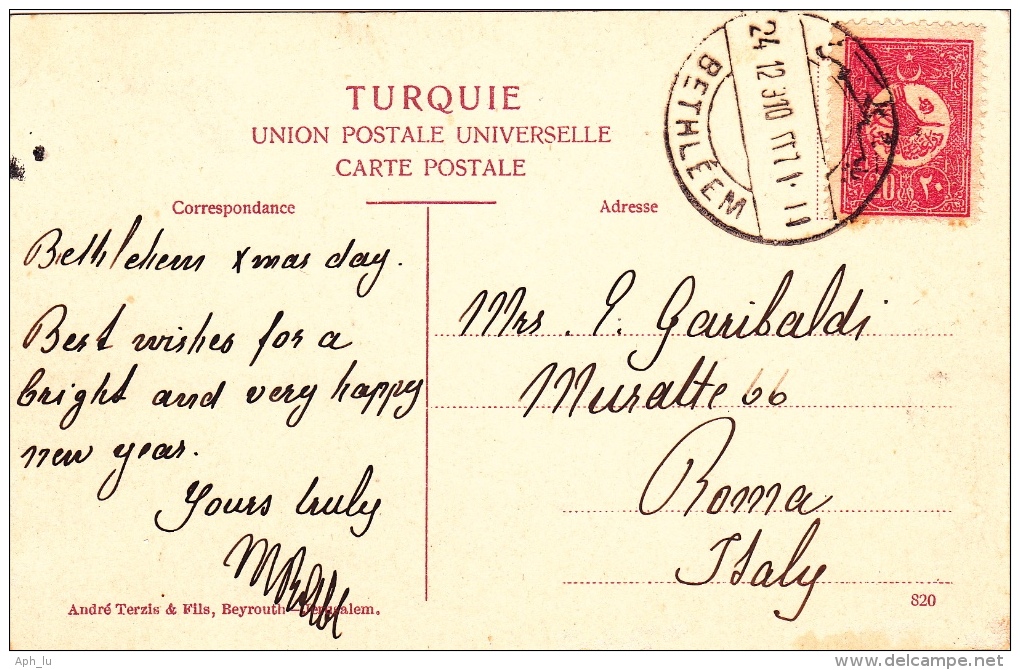 TURQUIE
UNION POSTALE UNIVERSELLE
CARTE POSTALE
BETHLÉEM
24 12 910
٢٠
Correspondance
Adresse
Bethlehem Xmas day.
Best wishes for a
bright and very happy
new year.
Yours truly
Mrs. E. Garibaldi
Muratte 66
Roma
Italy
André Terzis & Fils, Beyrouth - Jerusalem.
820
Aph_lu
delcampe.net